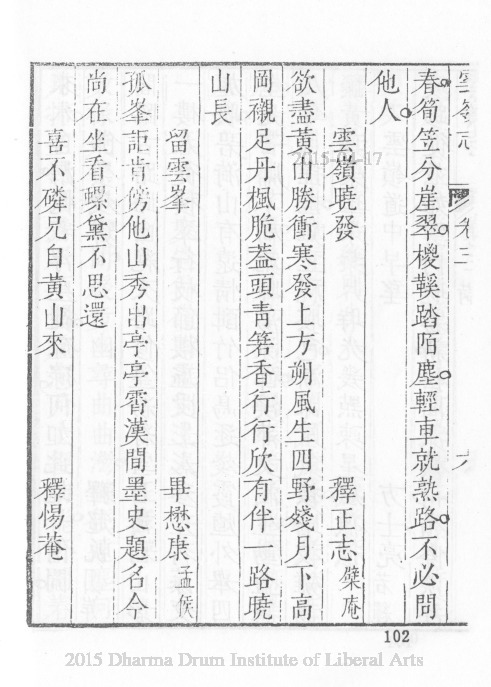 雲嶺志 卷三 六
春筍笠分崖翠椶鞵踏陌塵輕車就熟路不必問
他人
雲嶺曉發 釋正志 檗庵
欲盡黃山勝衝寒發上方朔風生四野殘月下高
岡襯足丹楓脆蓋頭青箬香行行欣有伴一路曉
山長
留雲峯 畢懋康 孟侯
孤峯詎肯傍他山秀出亭亭霄漢間墨史題名今
尚在坐看螺黛不思還
喜不磷兄自黃山來 釋惕菴
2015-04-17
102
2015 Dharma Drum Institute of Liberal Arts